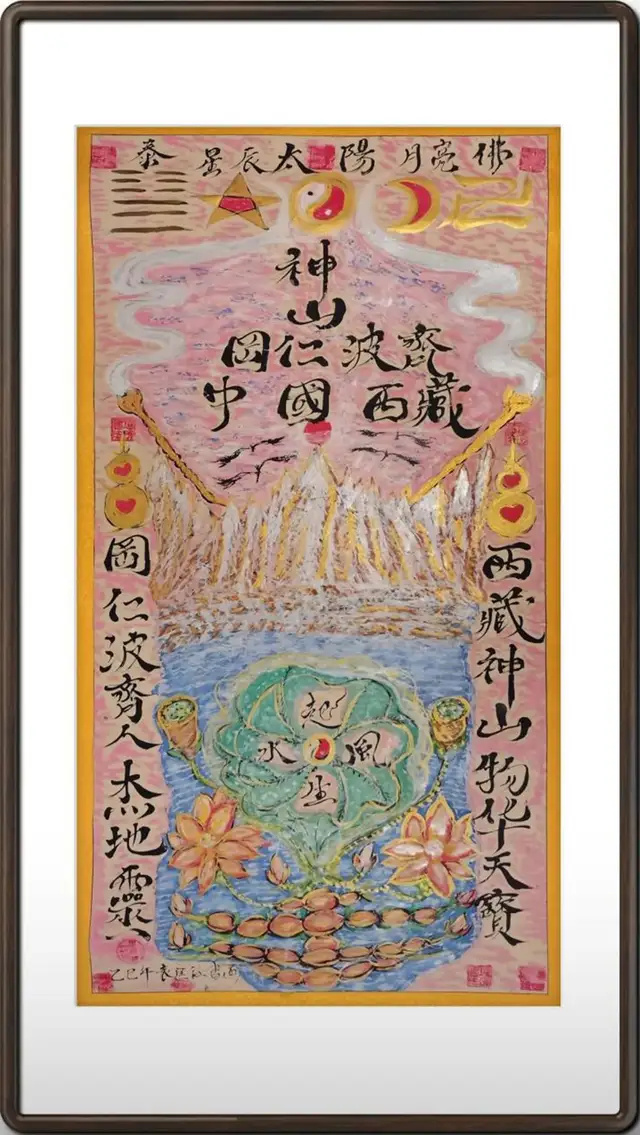 泰 星辰 太陽 月亮 佛
神
山
岡仁波齊
中國西藏
西藏神山物华天寶
岡仁波齊人杰地靈
風生水起
乙巳年